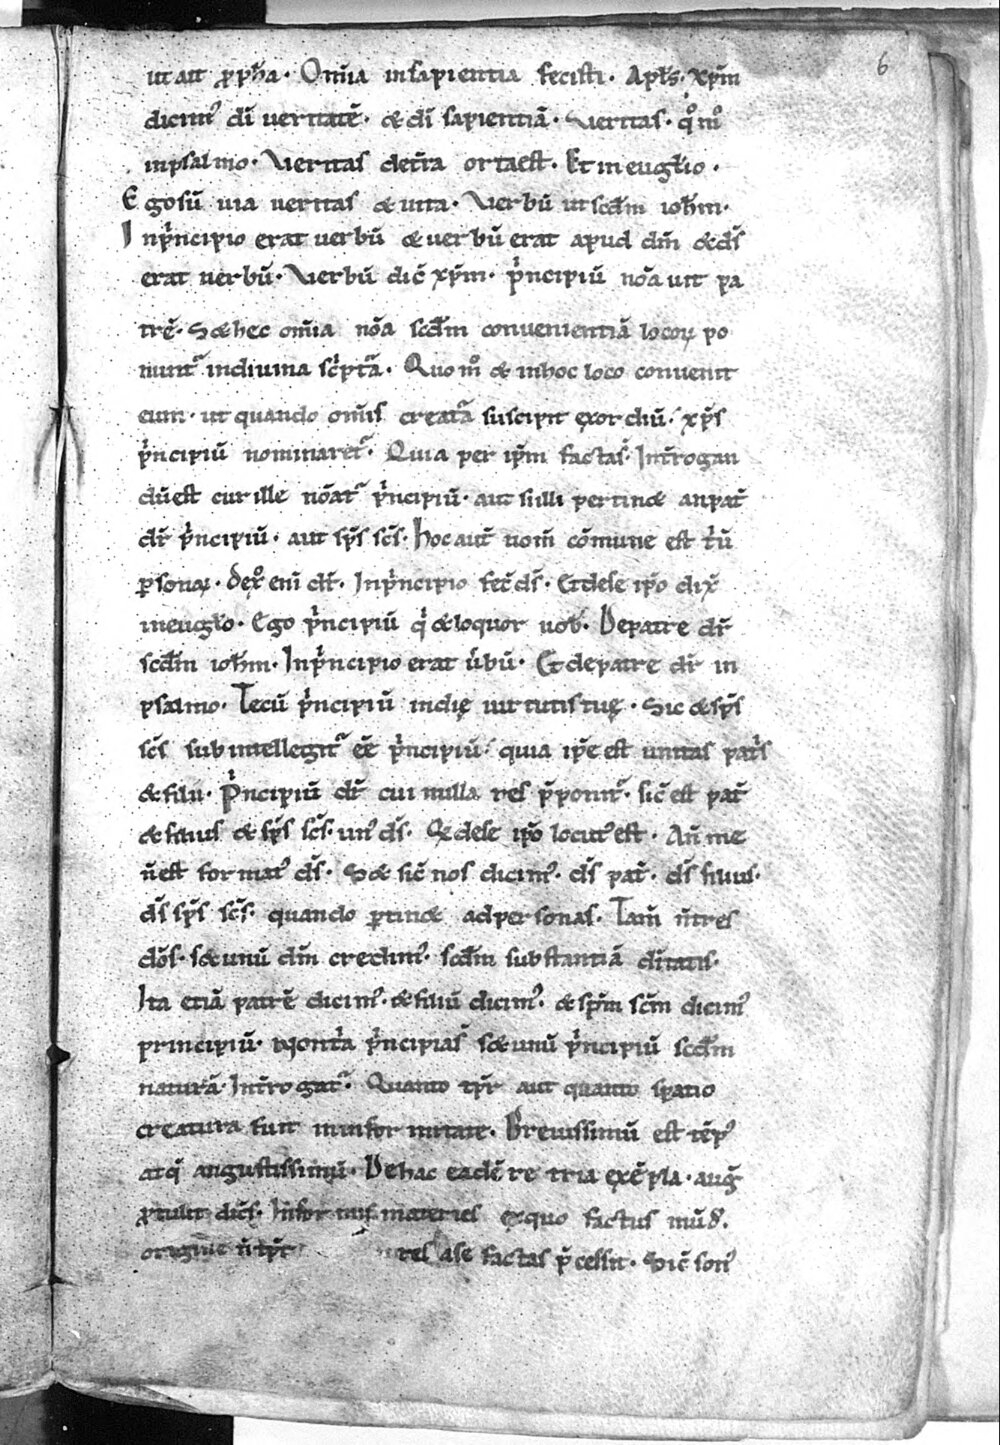 6
ut ait ꝓph̄a. Om̄ia insapientia fecisti. Apl̄s. xp̄m
dicim᷒ dī veritatē. & dī sapientiā. Veritas. q̊m̊
inpsalmo. Veritas det̄ra orta est. Et in eugl̄io.
Ego sū uia ueritas & uita. Verbū ut scd̄m ioh̄m.
Inp̍ncipio erat uerbū & uerbū erat apud dm̄ & ds̄
erat uerbū. Verbū dic̄ xp̄m. p̍ncipiū nōauit pa
trē. S& hec om̄ia nōa scd̄m conuenientiā locoꝝ po
nunt᷑ indiuina sc̍pt᷑a. Quom̊ & inhoc loco conuenit
eum. ut quando om̄is creat᷑a suscipit exordiū. xp̄s
p̍ncipiū nominaret᷑. Quia per ip̄m factas̄. Int̄rogan
dū est cur ille nōat᷑ p̍ncipiū. aut si illi pertin& an pat̄
dr̄ p̍ncipiū. aut sp̄s sc̄s. Hoc aut̄ nom̄ cōmune est t̍ū
ꝑsonaꝝ. De xp̊ eni dr̄. Inp̍ncipio fec̄ ds̄. Et dese ip̄o dix̄
ineugl̄o. Ego p̍ncipiū q̍ & loquor uob̄. De patre dr̄
scd̄m ioh̄m. Inp̍ncipio erat u̍bū. Et de patre dr̄ in
psalmo. Tecū p̍ncipiū indię uirtutis tuę. Sic & sp̄s
sc̄s subintellegit᷑ eē p̍ncipiū. quia ip̄e est unitas pat̍s
& filii. P̍ncipiū dr̄ cui nulla res p̄ponit᷑. sic̄ est pat̄
& filius & sp̄s sc̄s. un᷒ ds̄. Et dese ip̄o locut᷒ est. An̄ me
n̄ est format᷒ ds̄. S& sic̄ nos dicim᷒. ds̄ pat̄. ds̄ filius.
ds̄ sp̄s sc̄s. quando ꝑtin& ad personas. Tam̄ n̄ tres
dōs. s& unū dm̄ credim᷒. scd̄m substantiā dīitatis.
Ita etiā patrē dicim᷒. & filiū dicim᷒. & sp̄m sc̄m dicim᷒
principiū. Non t̍a p̍ncipia s& unū p̍ncipiū scd̄m
naturā. Int̄rogat᷑. Quanto tp̄r aut quanto spatio
creatura fuit ininformitate. Breuissimū est tēp᷒
atq̄ angustissimū. De hac eadē re tria exēpla. auḡ
ꝓtulit dic̄s. Informis materies exquo factus mūd̄.
origine n̄ tp̄r res a se factas p̄cessit. Sic̄ son᷒